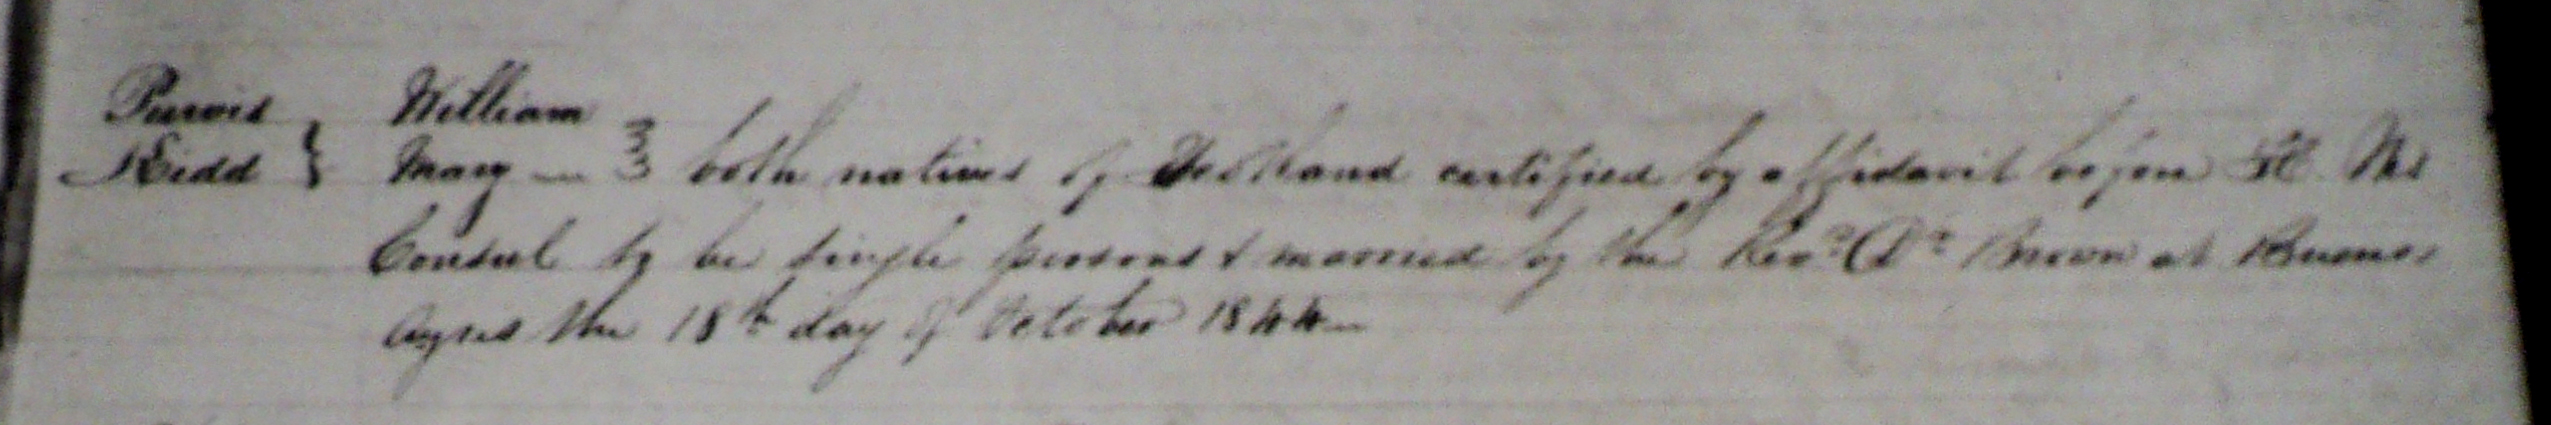 Purvis } William }
Kidd } Mary — } both natives of Scotland certified by affidavit before H. Ms
Consul to be single persons & married by the Revd. Dr. Brown at Buenos
Ayres the 18th day of October 1844—